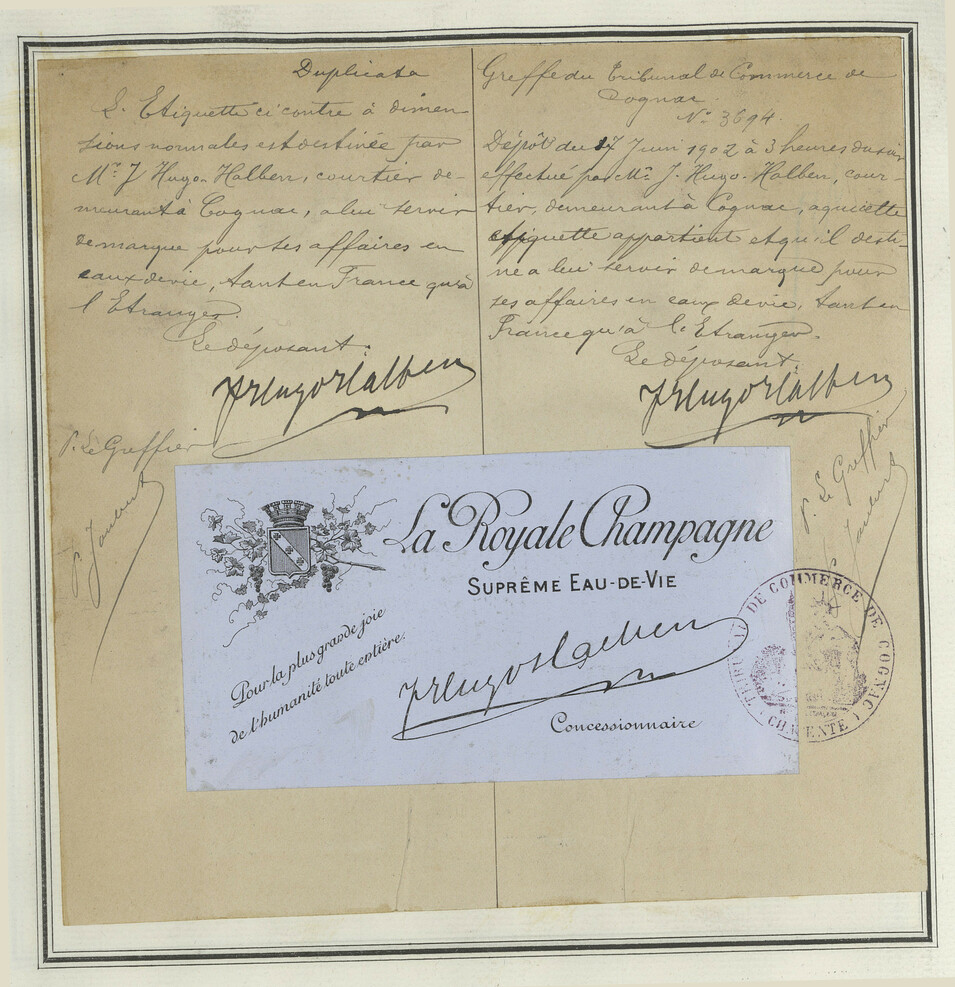 Duplicata
L'Etiquette ci contre à dimen-
sions normales est destinée par
Mr. J Hugo-Halben, courtier de-
meurant à Cognac, a lui servir
de marque pour ses affaires en
eaux de vie, tant en France qu'à
l'Etranger.
Le déposant.
JHugoHalben
P. Le Greffier
Greffe du Tribunal de Commerce de
Cognac.
No. 3694.
Dépôt du 17 Juin 1902 à 3 heures du soir
effectué par Mr. J. Hugo-Halben, cour-
tier, demeurant à Cognac, a qui cette
etiquette appartient et qu'il desti-
ne a lui servir de marque pour
ses affaires en eaux de vie, tant en
France qu'à l'Etranger.
Le déposant.
JHugoHalben
P. Le Greffier
La Royale Champagne
SUPRÊME EAU-DE-VIE
Pour la plus grande joie
de l'humanité toute entière.
JHugoHalben
Concessionnaire
TRIBUNAL DE COMMERCE DE COGNAC
(CHARENTE)